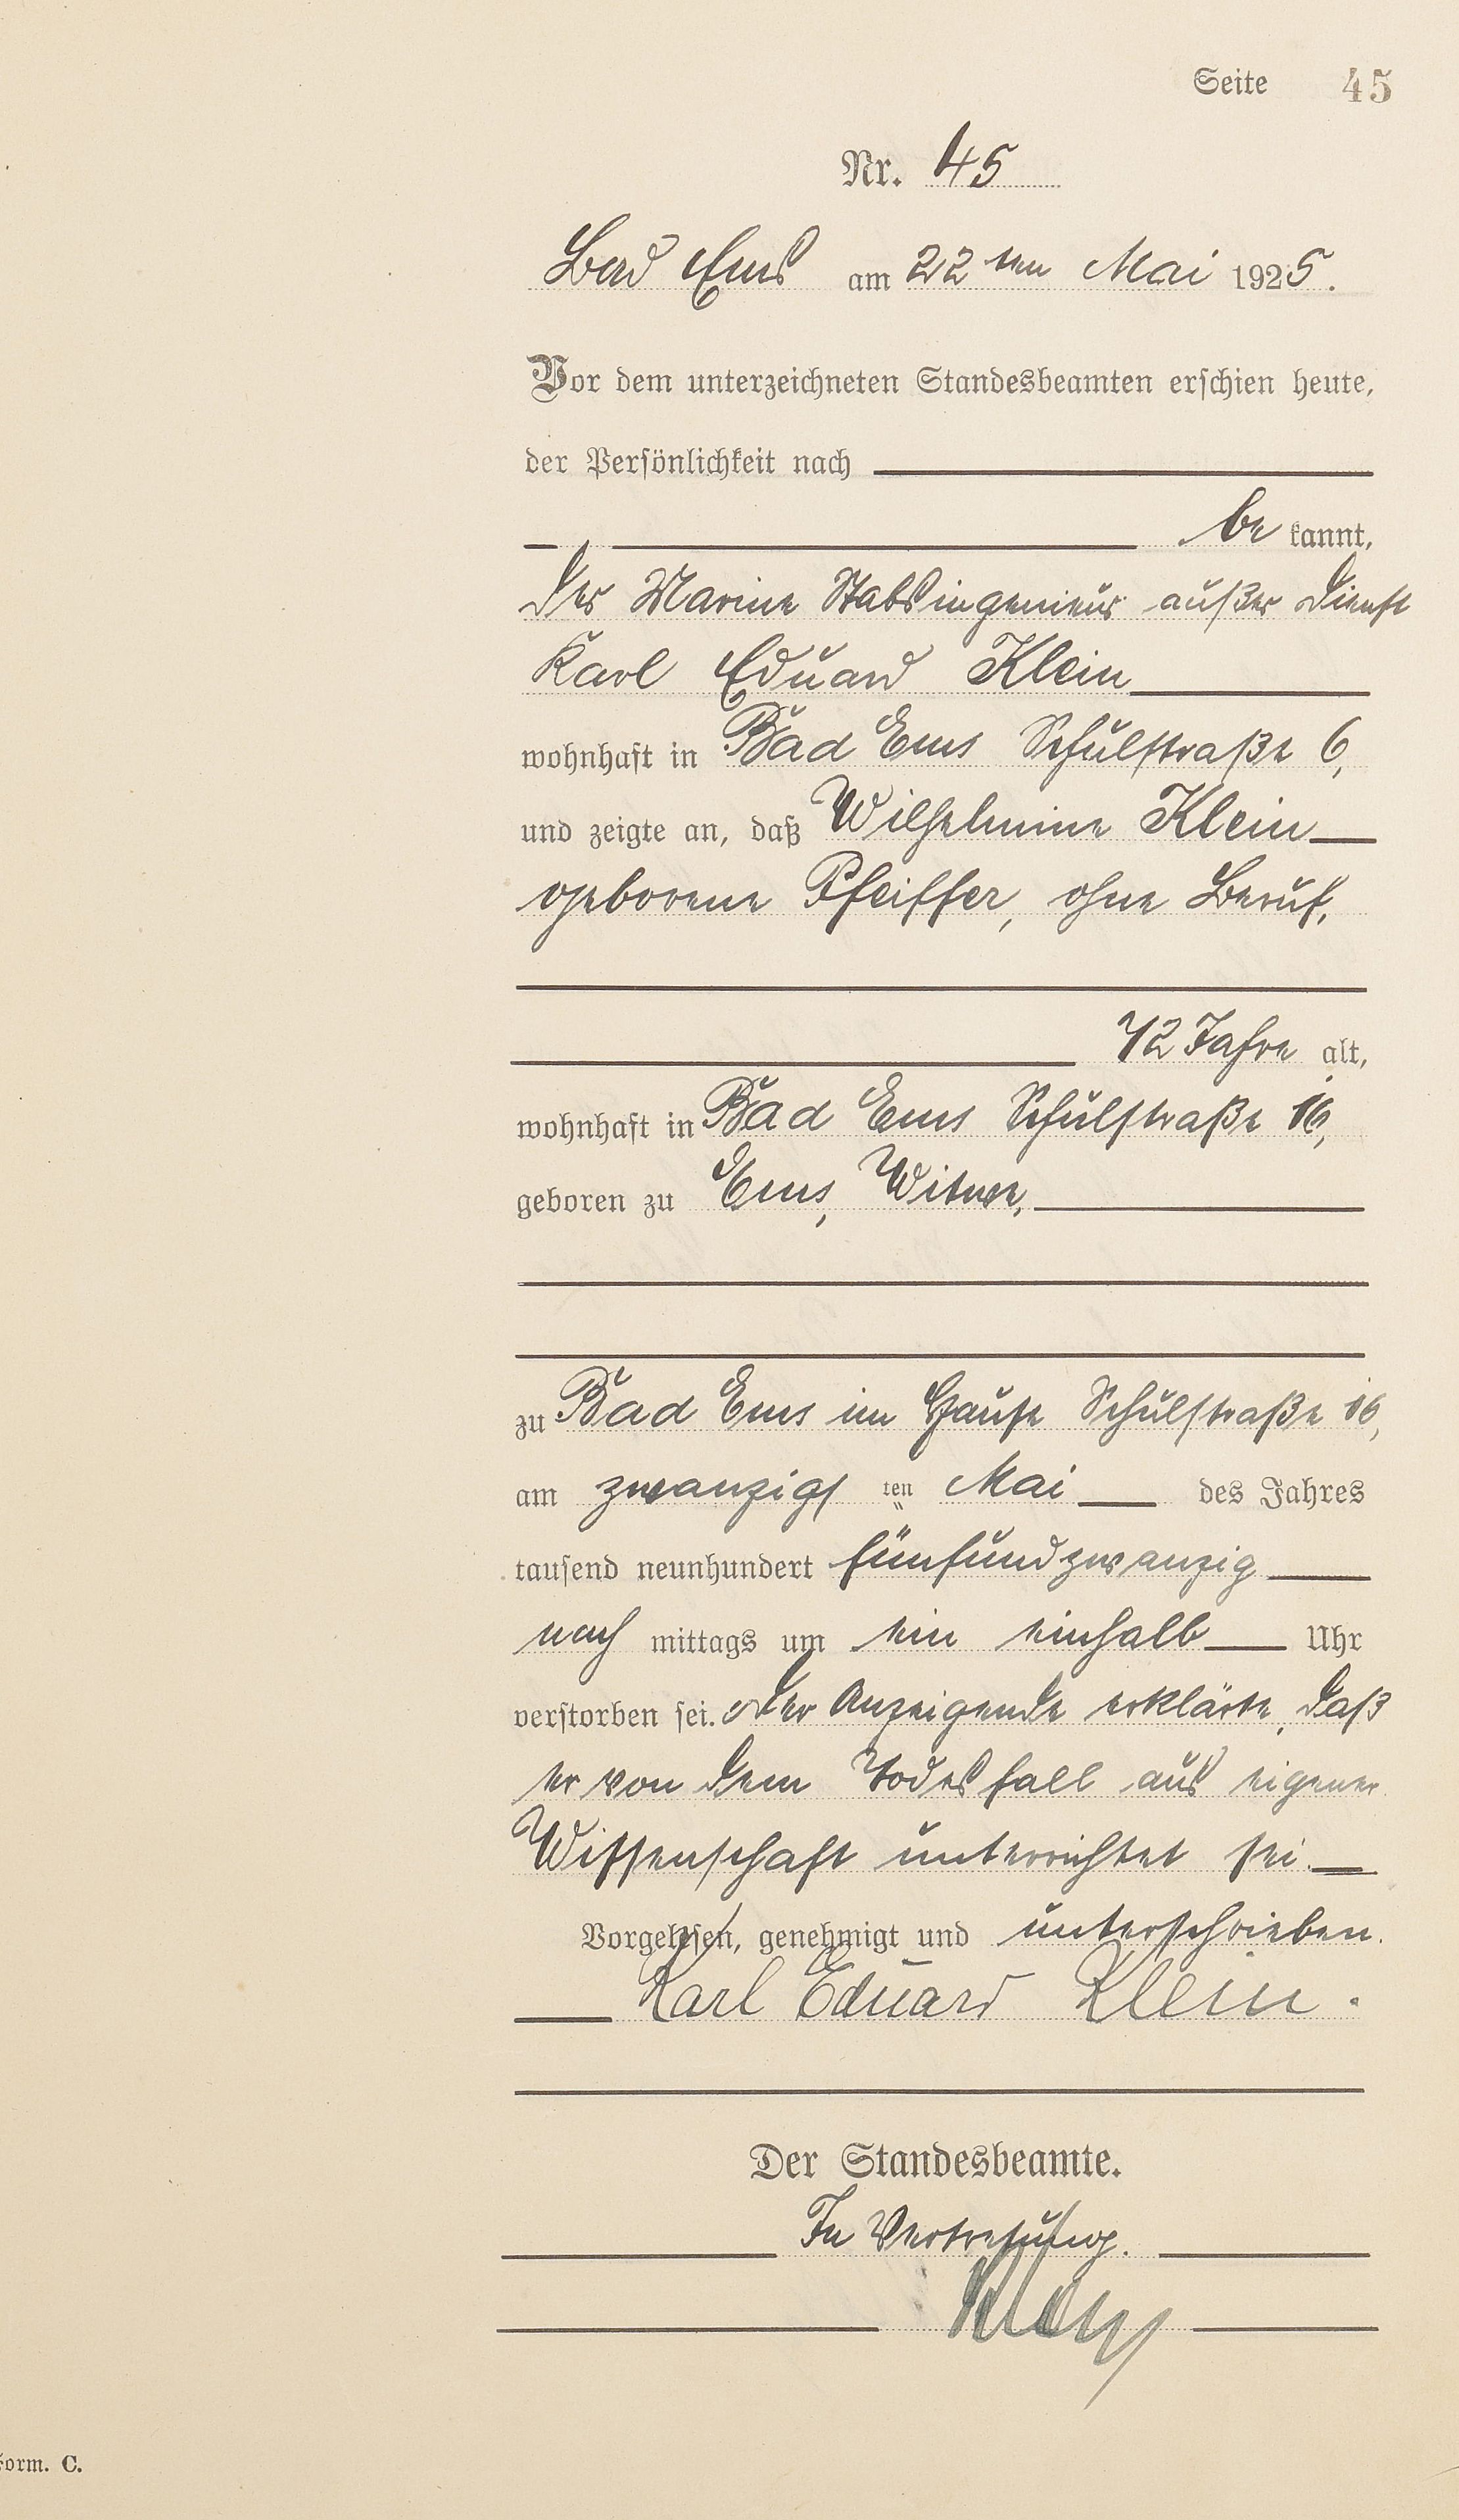 Seite 45
Nr. 45
Bad Ems am 22ten Mai 1925.
Vor dem unterzeichneten Standesbeamten erschien heute,
der Persönlichkeit nach
be kannt,
der Marine Stabsingenieur außer Dienst
Karl Eduard Klein
wohnhaft in Bad Ems Schulstraße 6,
und zeigte an, daß Wilhelmine Klein
geborene Pfeiffer, ohne Beruf,
72 Jahre alt,
wohnhaft in Bad Ems Schulstraße 16,
geboren zu Ems, Witwe,
zu Bad Ems im Hause Schulstraße 16,
am zwanzigs ten Mai des Jahres
tausend neunhundert fünfundzwanzig
nach mittags um ein einhalb Uhr
verstorben sei. Der Anzeigende erklärte, daß
er von dem Todesfall aus eigener
Wissenschaft unterrichtet sei.
Vorgelesen, genehmigt und unterschrieben.
Karl Eduard Klein.
Der Standesbeamte.
In Vertretung.
Form. C.